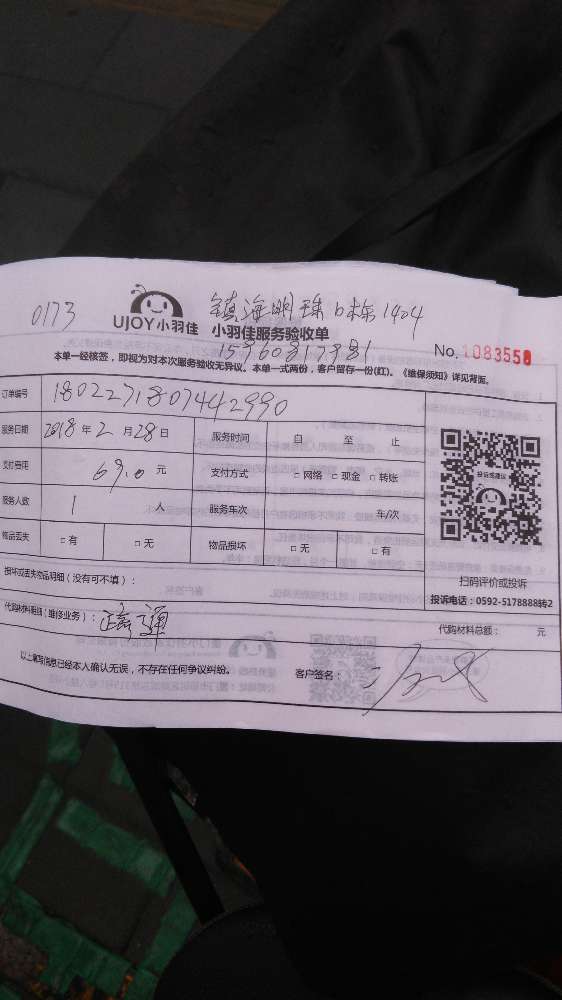 0173
镇海明珠6栋1404
UJOY小羽佳 小羽佳服务验收单
15960817381
No. 1083550
本单一经核签，即视为对本次服务验收无异议。本单一式两份，客户留存一份(红)。《维保须知》详见背面。
订单编号 1802271807442990
服务日期 2018年2月28日 服务时间 自 至 止
支付费用 69.0元 支付方式 □网络 □现金 □转账
服务人数 1人 服务车次 车/次
物品丢失 □有 □无 物品损坏 □无 □有
投诉或建议
扫码评价或投诉
投诉电话：0592-5178888转2
损坏或丢失物品明细（没有可不填）：
代购材料明细（维修业务）： 疏通
代购材料总额： 元
以上填写信息已经本人确认无误，不存在任何争议纠纷。 客户签名：